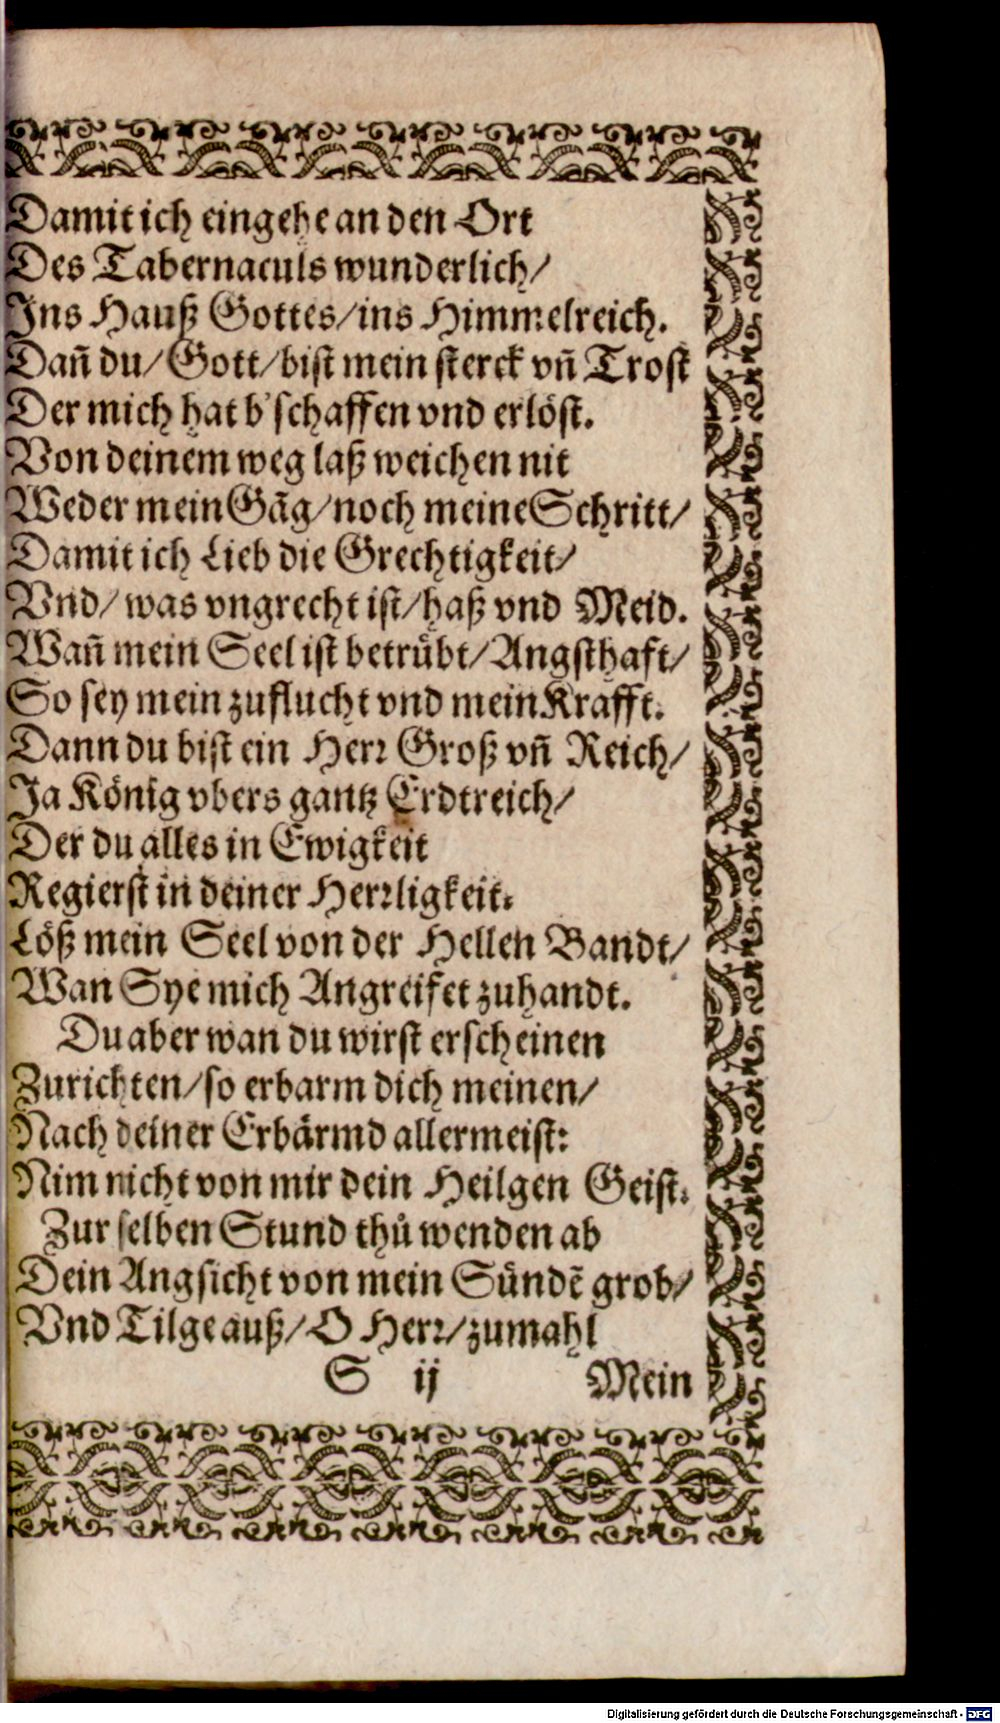 Damit ich eingehe an den Ort
Des Tabernaculs wunderlich/
Ins Hauß Gottes/ins Himmelreich.
Dañ du/Gott/bist mein sterck vñ Trost
Der mich hat b'schaffen vnd erlöst.
Von deinem weg laß weichen nit
Weder mein Gãg/noch meine Schritt/
Damit ich Lieb die Grechtigkeit/
Vnd/was vngrecht ist/haß vnd Meid.
Wañ mein Seel ist betrübt/Angsthaft/
So sey mein zuflucht vnd mein Krafft.
Dann du bist ein Herr Groß vñ Reich/
Ja König vbers gantz Erdtreich/
Der du alles in Ewigkeit
Regierst in deiner Herrligkeit.
Löß mein Seel von der Hellen Bandt/
Wan Sye mich Angreifet zuhandt.
Du aber wan du wirst erscheinen
Zurichten/so erbarm dich meinen/
Nach deiner Erbärmd allermeist:
Nim nicht von mir dein Heilgen Geist.
Zur selben Stund thů wenden ab
Dein Angsicht von mein Sündẽ grob/
Vnd Tilge auß/O Herr/zumahl
S ij Mein
Digitalisierung gefördert durch die Deutsche Forschungsgemeinschaft - DFG